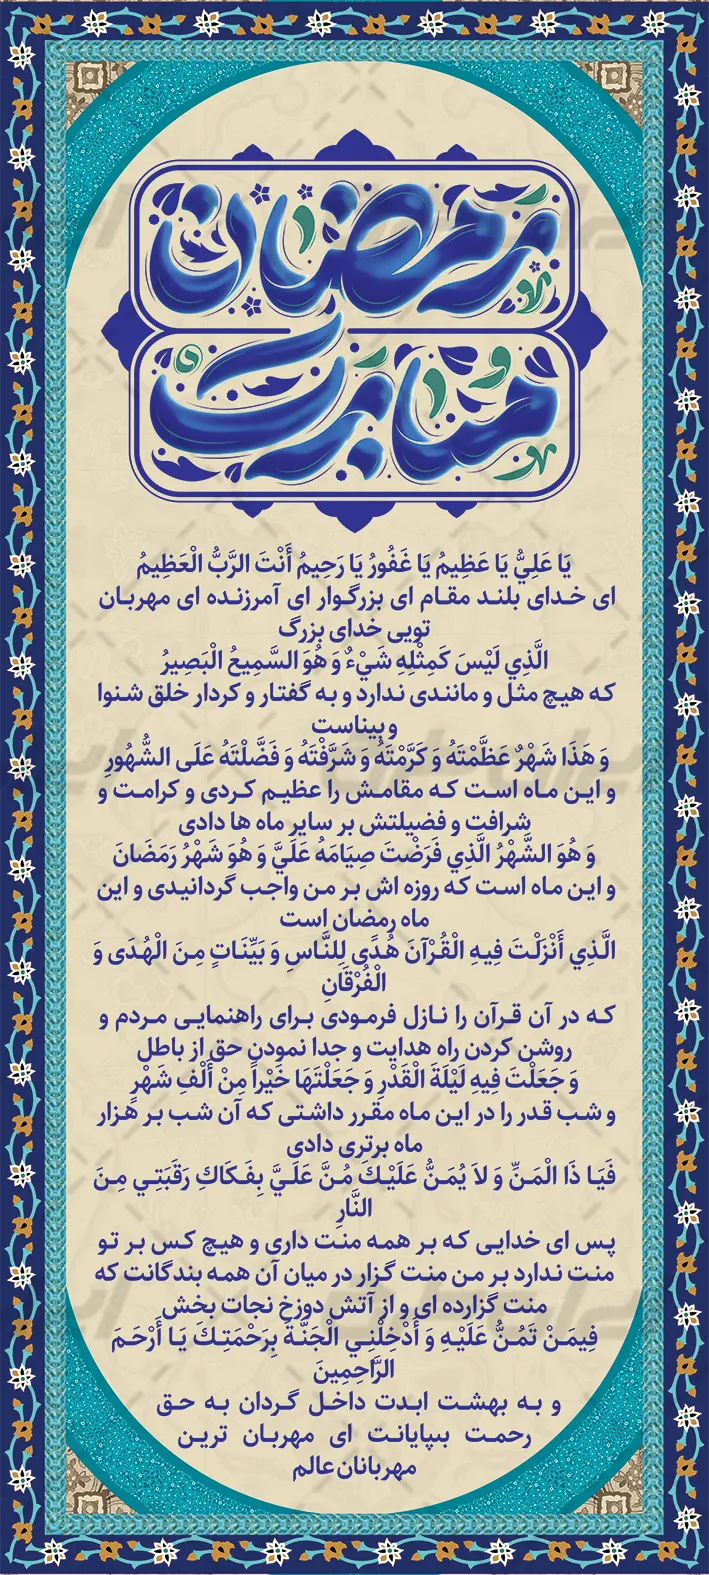 رمضان
مبارک
يَا عَلِيُّ يَا عَظِيمُ يَا غَفُورُ يَا رَحِيمُ أَنْتَ الرَّبُّ الْعَظِيمُ
ای خدای بلند مقام ای بزرگوار ای آمرزنده ای مهربان
تویی خدای بزرگ
الَّذِي لَيْسَ كَمِثْلِهِ شَيْءٌ وَ هُوَ السَّمِيعُ الْبَصِيرُ
که هیچ مثل و مانندی ندارد و به گفتار و کردار خلق شنوا
و بیناست
وَ هَذَا شَهْرٌ عَظَّمْتَهُ وَ كَرَّمْتَهُ وَ شَرَّفْتَهُ وَ فَضَّلْتَهُ عَلَى الشُّهُورِ
و این ماه است که مقامش را عظیم کردی و کرامت و
شرافت و فضیلتش بر سایر ماه ها دادی
وَ هُوَ الشَّهْرُ الَّذِي فَرَضْتَ صِيَامَهُ عَلَيَّ وَ هُوَ شَهْرُ رَمَضَانَ
و این ماه است که روزه اش بر من واجب گردانیدی و این
ماه رمضان است
الَّذِي أَنْزَلْتَ فِيهِ الْقُرْآنَ هُدًى لِلنَّاسِ وَ بَيِّنَاتٍ مِنَ الْهُدَى وَ
الْفُرْقَانِ
که در آن قرآن را نازل فرمودی برای راهنمایی مردم و
روشن کردن راه هدایت و جدا نمودن حق از باطل
وَ جَعَلْتَ فِيهِ لَيْلَةَ الْقَدْرِ وَ جَعَلْتَهَا خَيْراً مِنْ أَلْفِ شَهْرٍ
و شب قدر را در این ماه مقرر داشتی که آن شب بر هزار
ماه برتری دادی
فَيَا ذَا الْمَنِّ وَ لاَ يُمَنُّ عَلَيْكَ مُنَّ عَلَيَّ بِفَكَاكِ رَقَبَتِي مِنَ
النَّارِ
پس ای خدایی که بر همه منت داری و هیچ کس بر تو
منت ندارد بر من منت گزار در میان آن همه بندگانت که
منت گزارده ای و از آتش دوزخ نجات بخش
فِيمَنْ تَمُنُّ عَلَيْهِ وَ أَدْخِلْنِي الْجَنَّةَ بِرَحْمَتِكَ يَا أَرْحَمَ
الرَّاحِمِينَ
و به بهشت ابدت داخل گردان به حق
رحمت بیپایانت ای مهربان ترین
مهربانان عالم